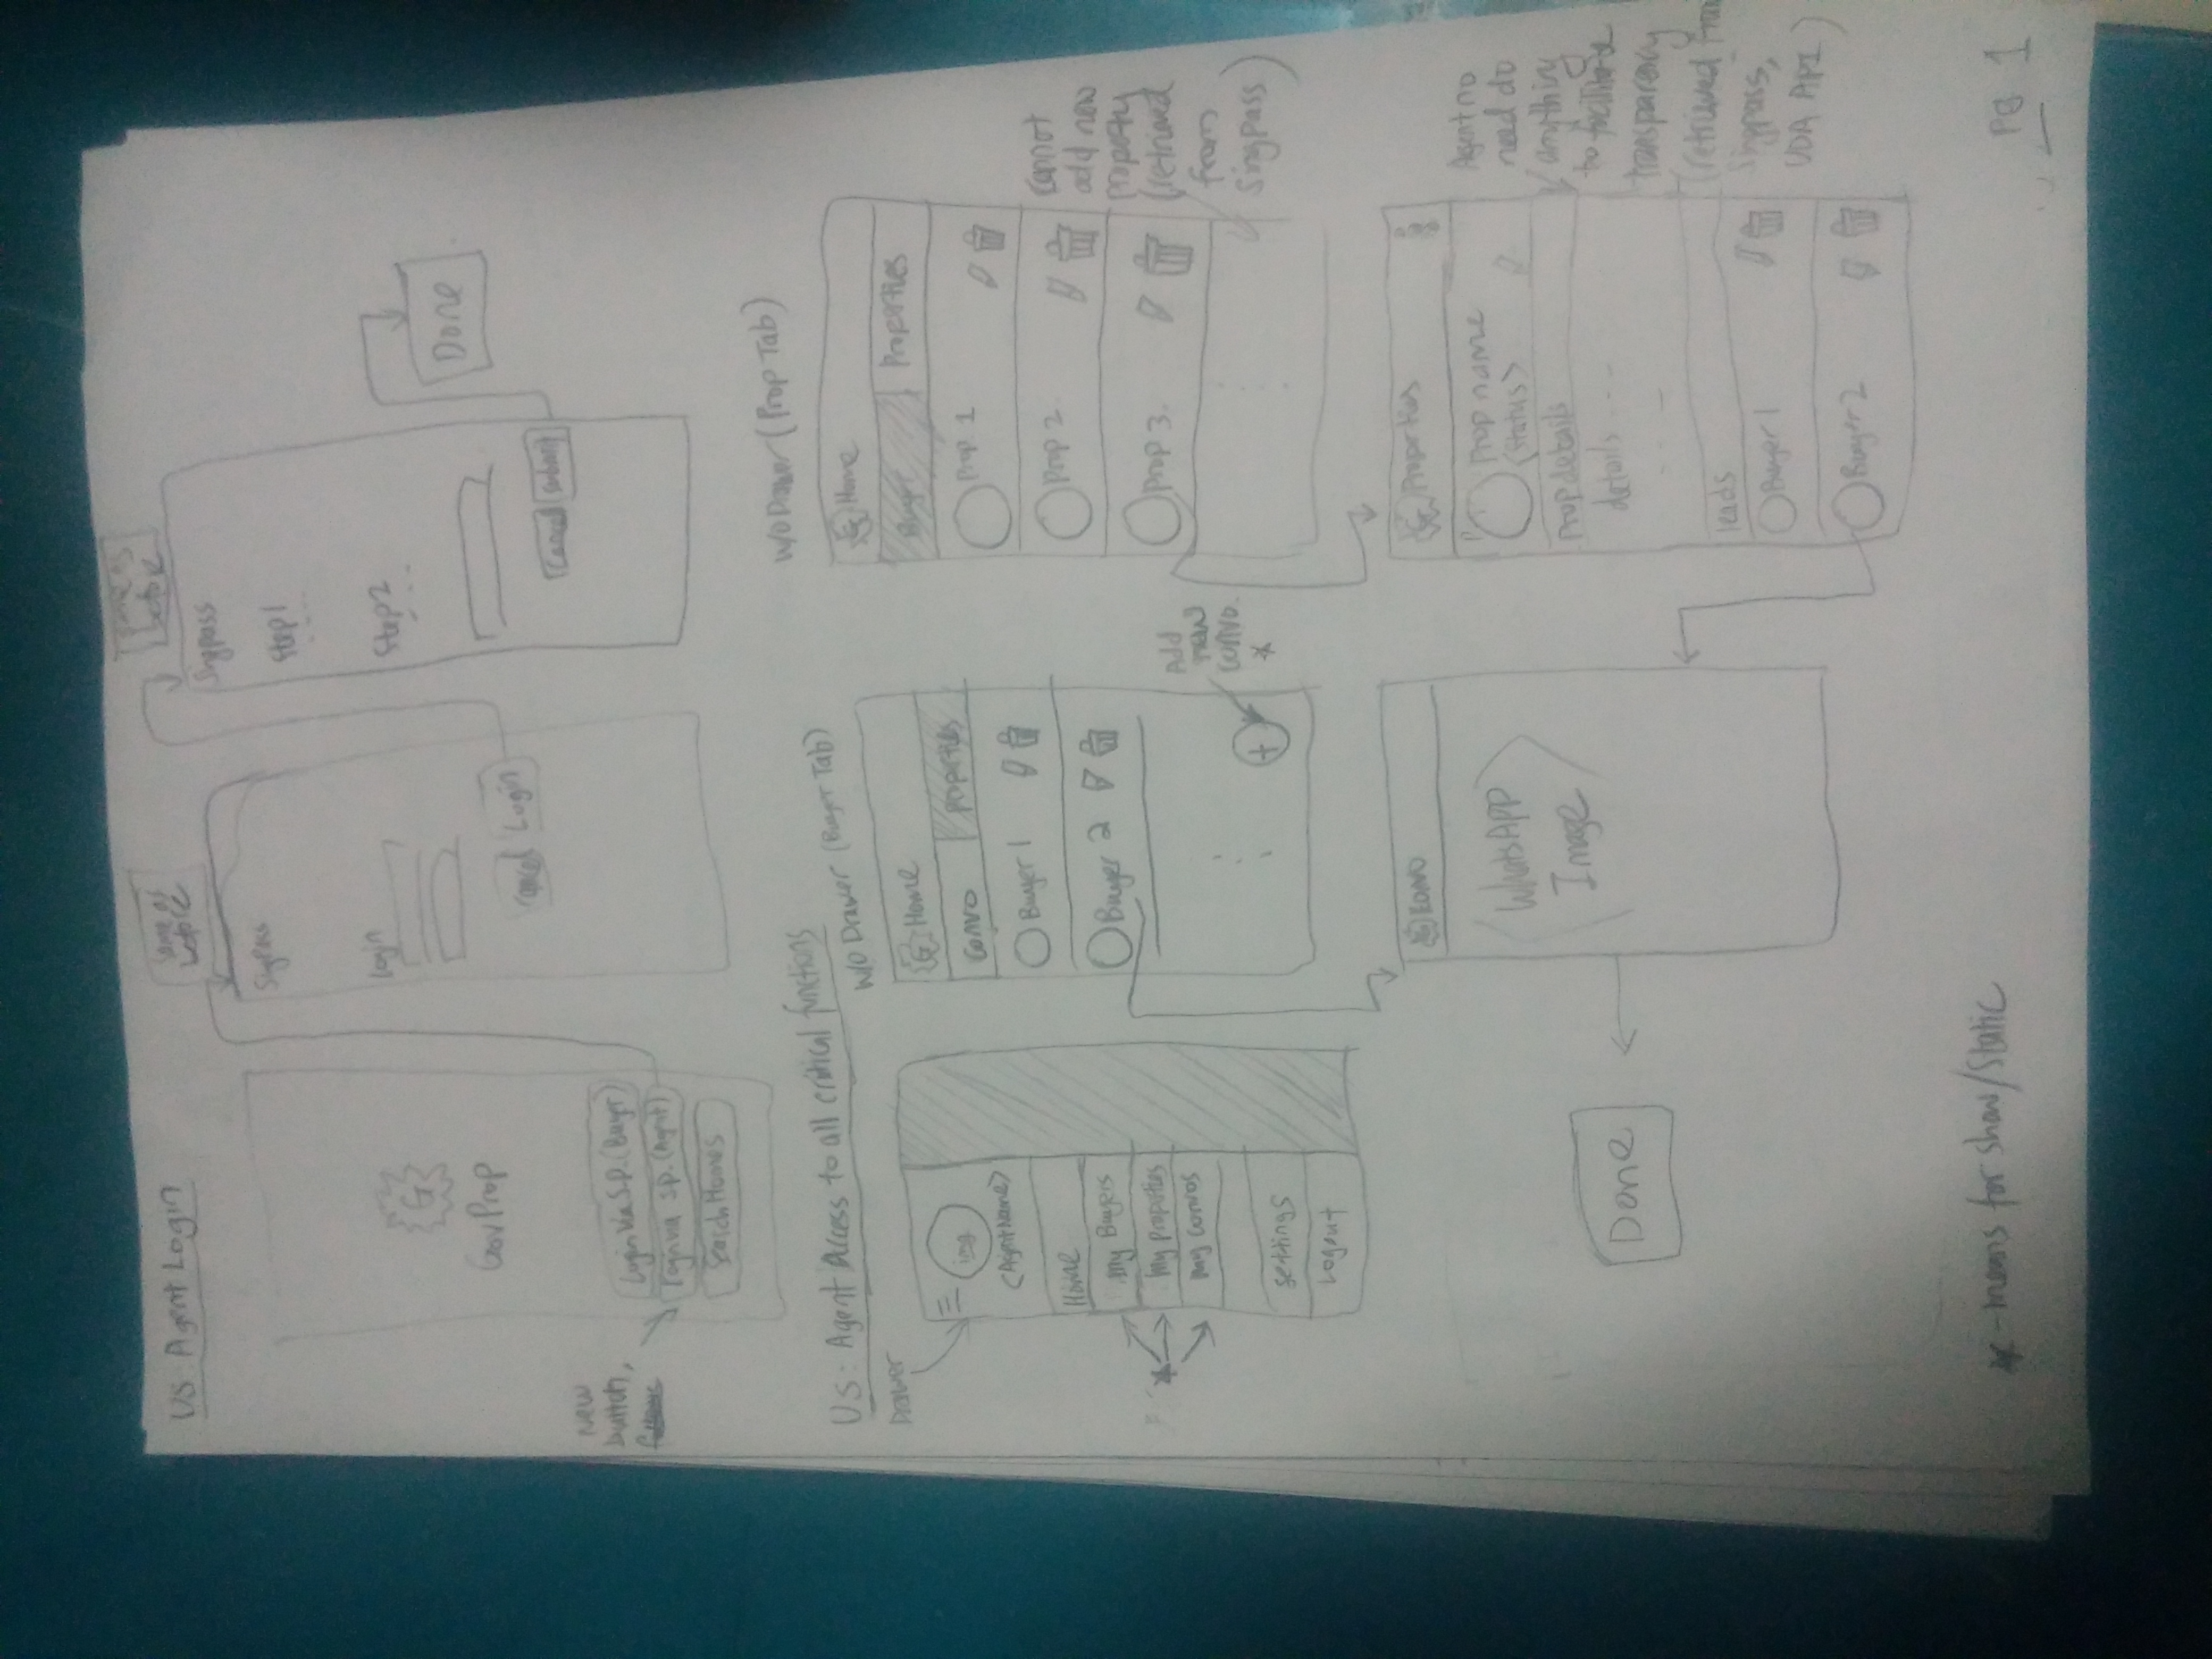 US: Agent Login
Same as
before
Same as
before
G
GovProp
New
button,
Login via S.P. (Buyer)
Login via S.P. (Agent)
Search Homes
SingPass
Login
Cancel Login
Singpass
Step 1
Step 2
Cancel Submit
Done
US: Agent Access to all critical functions
Drawer
img
<AgentName>
Home
my Buyers
my properties
my convos
settings
Logout
W/O Drawer (Buyer Tab)
G Home
Convo properties
Buyer 1
Buyer 2
+
Add
new
convo.
*
W/O Drawer (Prop Tab)
G Home
Buyer Properties
Prop. 1
Prop 2
Prop 3.
Cannot
add new
property
(retrieved
from
Singpass)
G Convo
WhatsApp
Image
Done
G Properties
Prop name
<status>
Prop details
details - - -
leads
Buyer 1
Buyer 2
Agent no
need do
anything
to facilitate
transparency
(retrieved from
Singpass,
UDA API)
* - means for show/static
PG 1